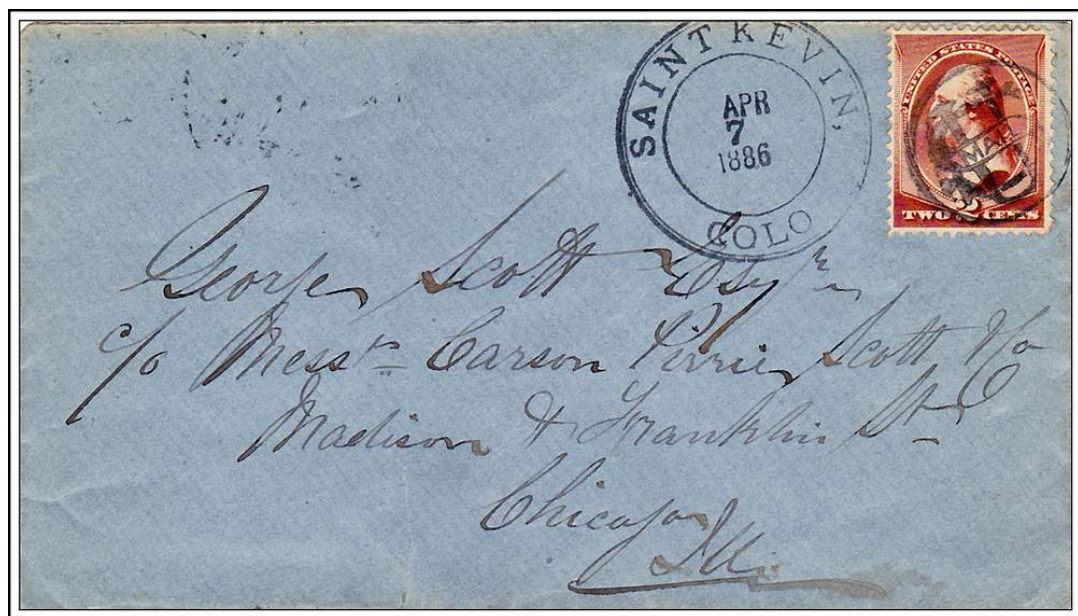 SAINT KEVIN,
APR
7
1886
COLO
UNITED STATES POSTAGE
TWO 2 CENTS
George Scott Esqr
c/o Messrs Carson Pirie Scott & Co
Madison & Franklin Sts
Chicago
Ill.